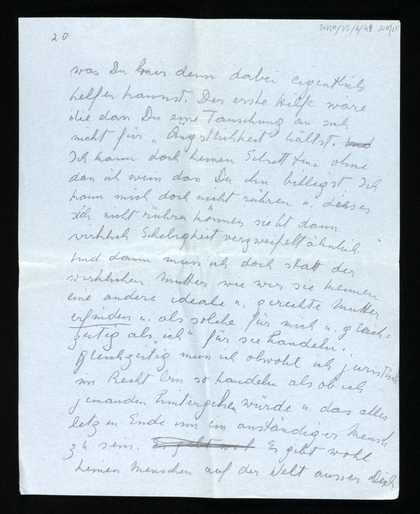 20
was Du hier denn dabei eigentlich
helfen kannst. Der erste Hilfe wäre
die dass Du eine Tauschung an sich
nicht für „Ängstlichkeit" hältst.
Ich kann doch keinen Schritt tun ohne
dass ich weiss dass Du ihn billigst. Ich
kann mich doch nicht rühren u. dieses
sich nicht rühren können sieht dann
wirklich Scheligkeit verzweifelt ähnlich.
Und dann muss ich doch statt der
wirklichen Mutter wie wir sie kennen
eine andere ideale u. gerechte Mutter
erfinden u. als solche für mich u. gleich-
zeitig als „ich" für sie handeln.
Gleichzeitig muss ich obwohl ich juristisch
im Recht bin so handeln als ob ich
jemanden hintergehen würde u. das alles
letzen Endes um ein anständiger Mensch
zu sein. Es gibt wohl
keinen Menschen auf der Welt ausser Dich